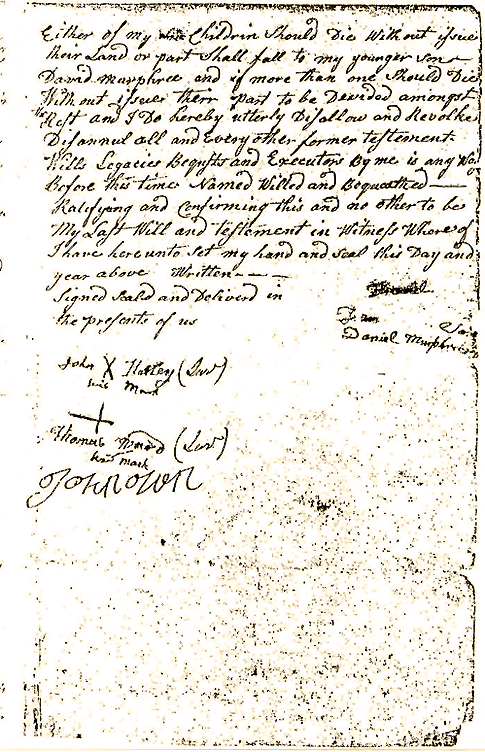 Either of my Children Should Die Without issue
their Land or part Shall fall to my younger Son
David Murphree and if more than one Should Die
With out issues therr part to be Devided amongst
the Rest and I Do hereby utterly Disallow and Revolke
Disannul all and Every other former testement.
Wills Legacies Bequsts and Executors By me is any Wa
Before this time Named Willed and Bequeathed
Ratifying and Confirming this and no other to be
My Last Will and testement in Witness Where of
I have here unto Set my hand and Seal this Day and
year above Written
Signed Seald and Deliverd in
the presents of us
Daniel Murphree
John X Hattey (Jur)
his Mark
Thomas Ward (Jur)
his mark
John Own